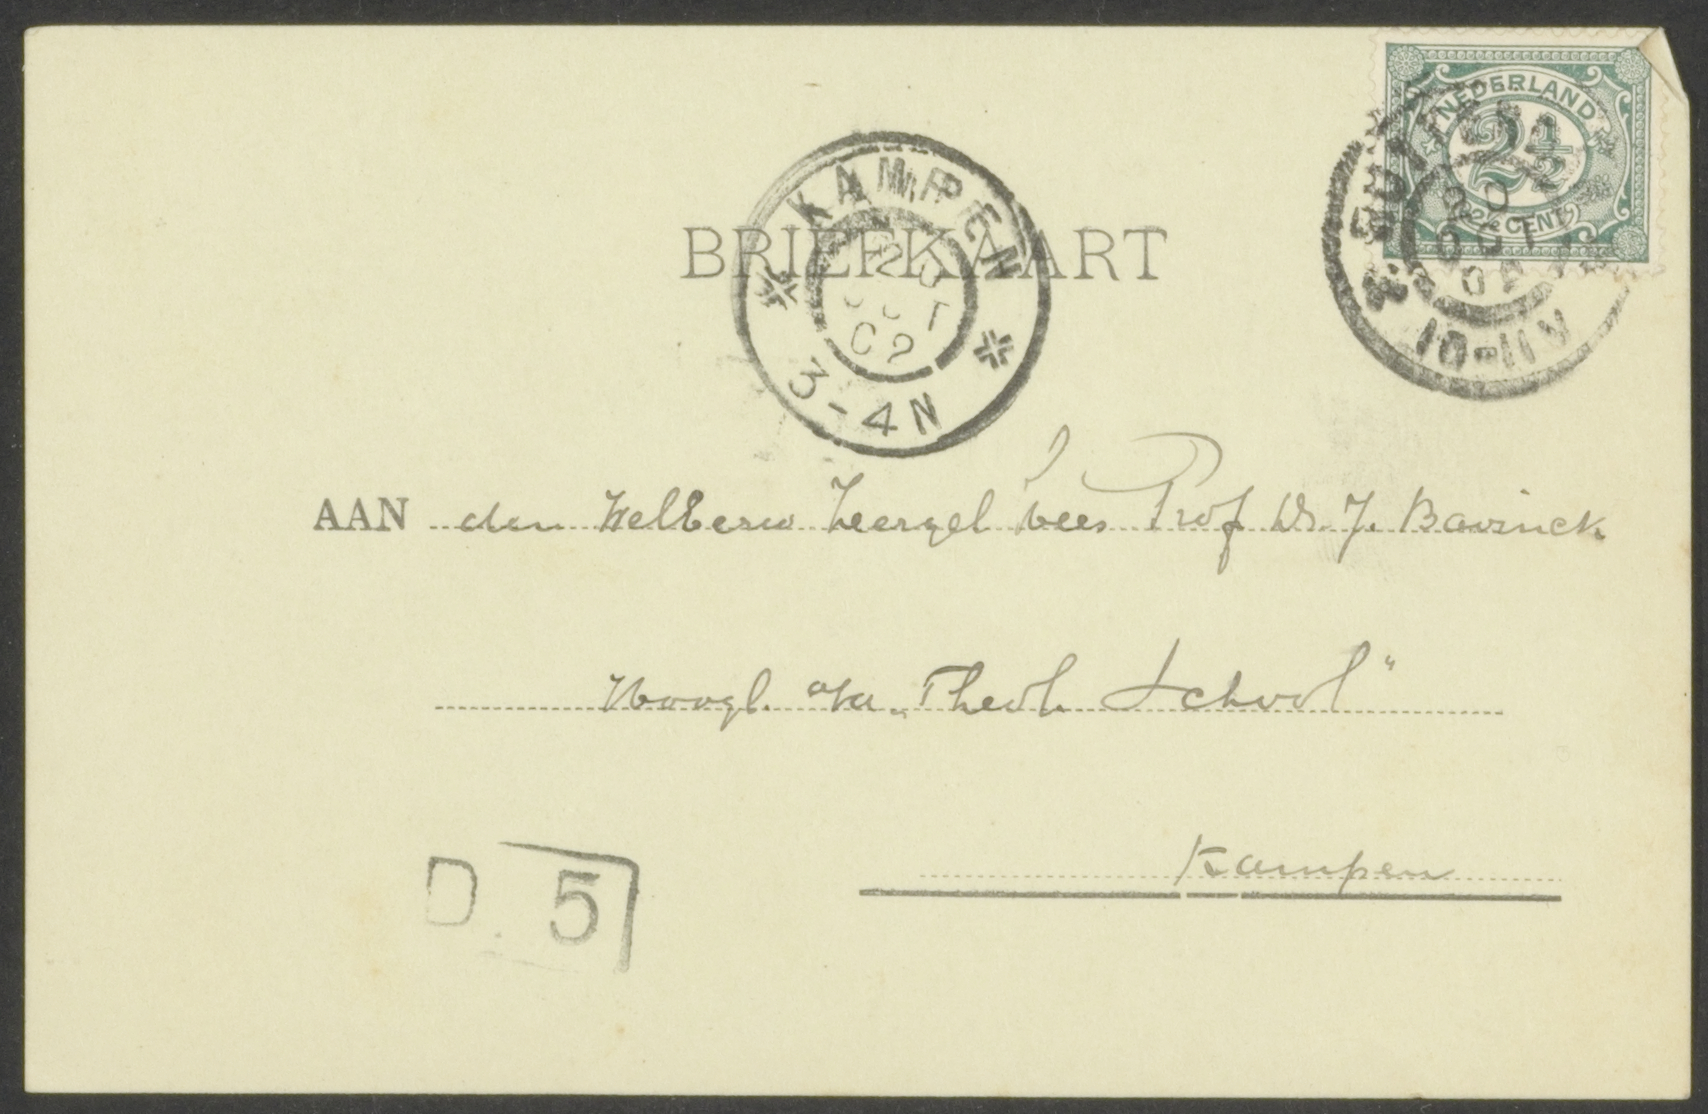 NEDERLAND
2½
2½ CENT
20
OCT
02
10-11V
BRIEFKAART
KAMPEN
20
OCT
02
3-4N
AAN den WelEerw Zeergel Heer Prof Dr. J. Bavinck.
Hoogl. Theol. School"
Kampen
D 5